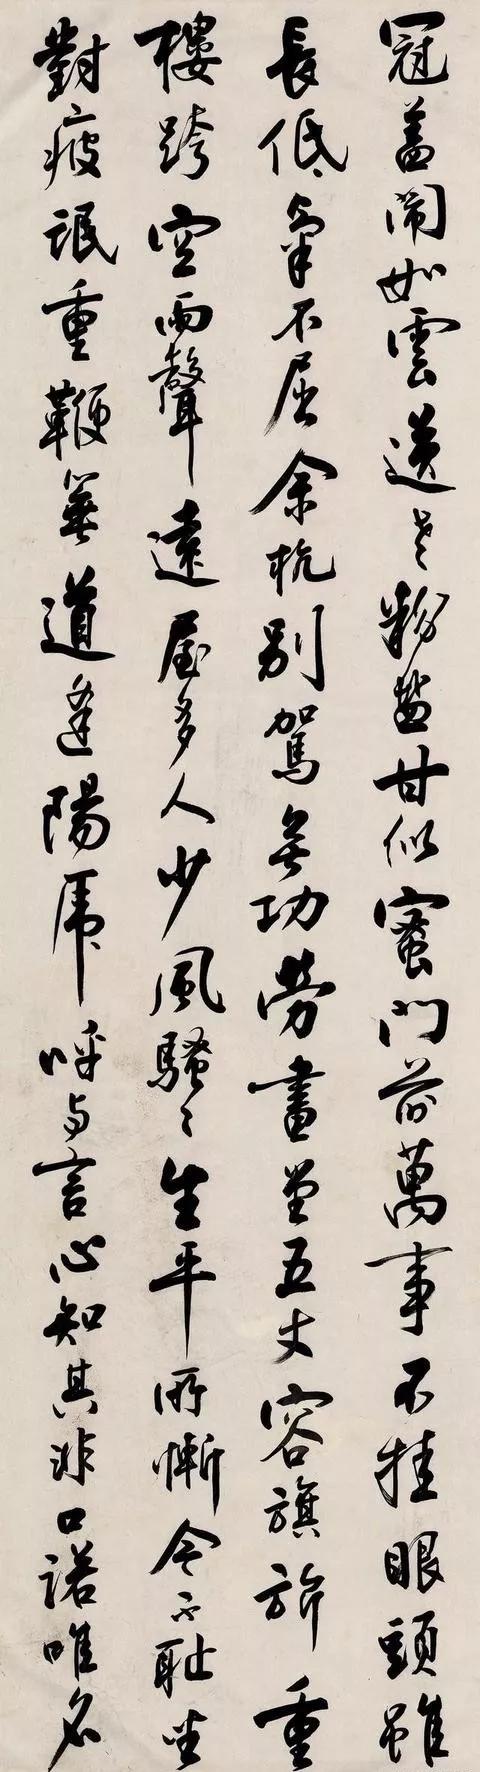 冠蓋閙如雲送老粉鹽甘似蜜門前萬事不挂眼頭雖
長低氣不屈余杭別駕無功勞畫堂五丈容旗旂重
樓跨空雨聲遠屋多人少風騷〻生平所慚今不耻坐
對疲氓重鞭箠道逢陽虎呼與言心知其非口諾唯名